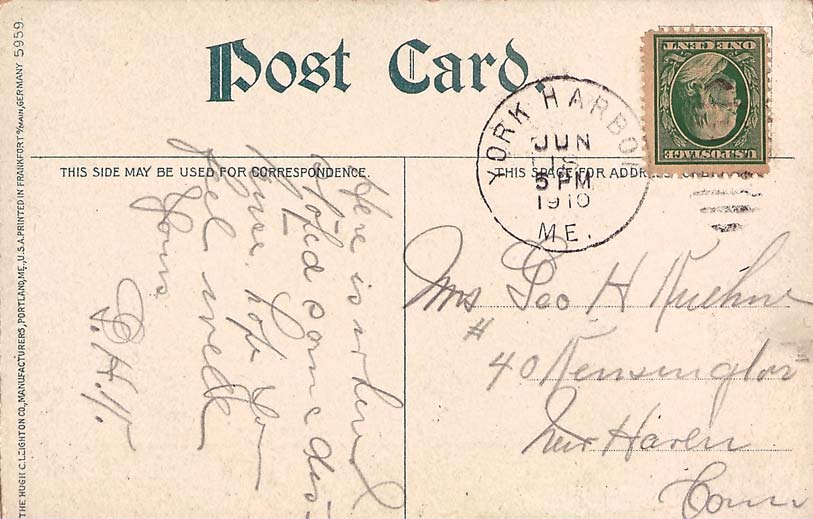 Post Card.
THIS SIDE MAY BE USED FOR CORRESPONDENCE.
THIS SPACE FOR ADDRESS
THE HUGH C. LEIGHTON CO., MANUFACTURERS, PORTLAND, ME., U.S.A. PRINTED IN FRANKFORT a/MAIN, GERMANY 5959.
YORK HARBOR
JUN
5 PM
1910
ME.
U.S. POSTAGE
ONE CENT
Here is where I
stoped some dis-
tance. hope you
feel well
Yours
G. H. K.
Mrs Geo H Kuehne
# 40 Kensington
New Haven
Conn